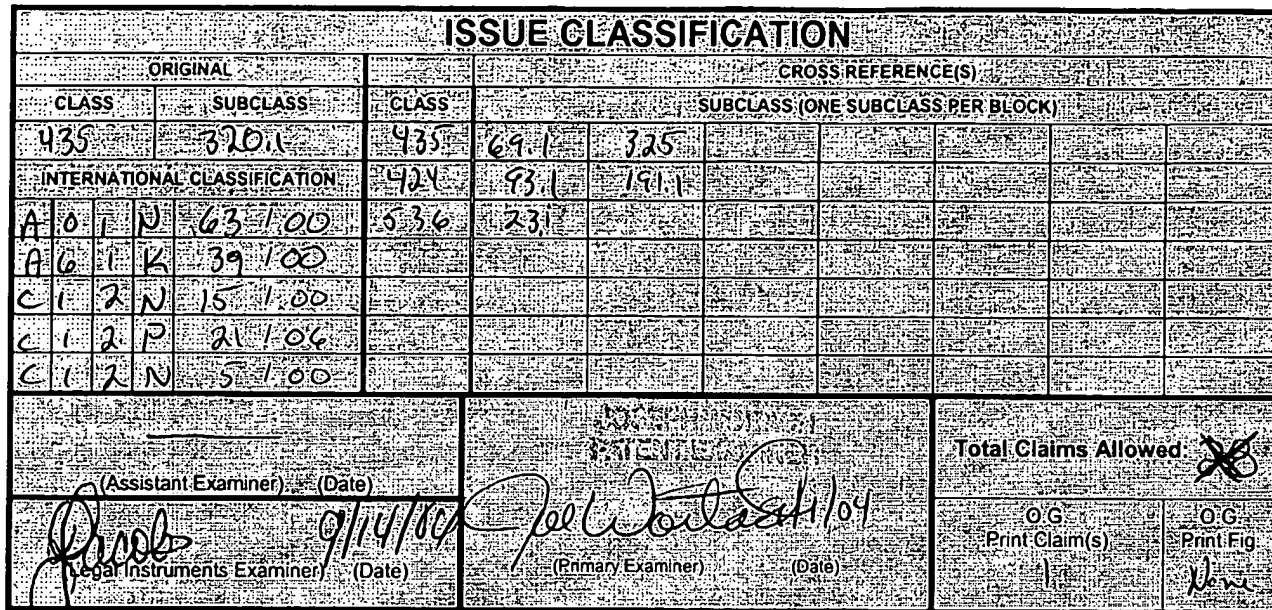 ISSUE CLASSIFICATION
ORIGINAL CROSS REFERENCE(S)
CLASS SUBCLASS CLASS SUBCLASS (ONE SUBCLASS PER BLOCK)
435 320.1 435 69.1 325
INTERNATIONAL CLASSIFICATION 424 93.1 191.1
A 0 1 N 63 / 00 536 23.1
A 6 1 K 39 / 00
C 1 2 N 15 / 00
C 1 2 P 21 / 06
C 1 2 N 5 / 00
Total Claims Allowed:
(Assistant Examiner) (Date)
Jacobs 9/14/04
(Legal Instruments Examiner) (Date)
(Primary Examiner) (Date)
O.G. Print Claim(s)
1
O.G. Print Fig
None